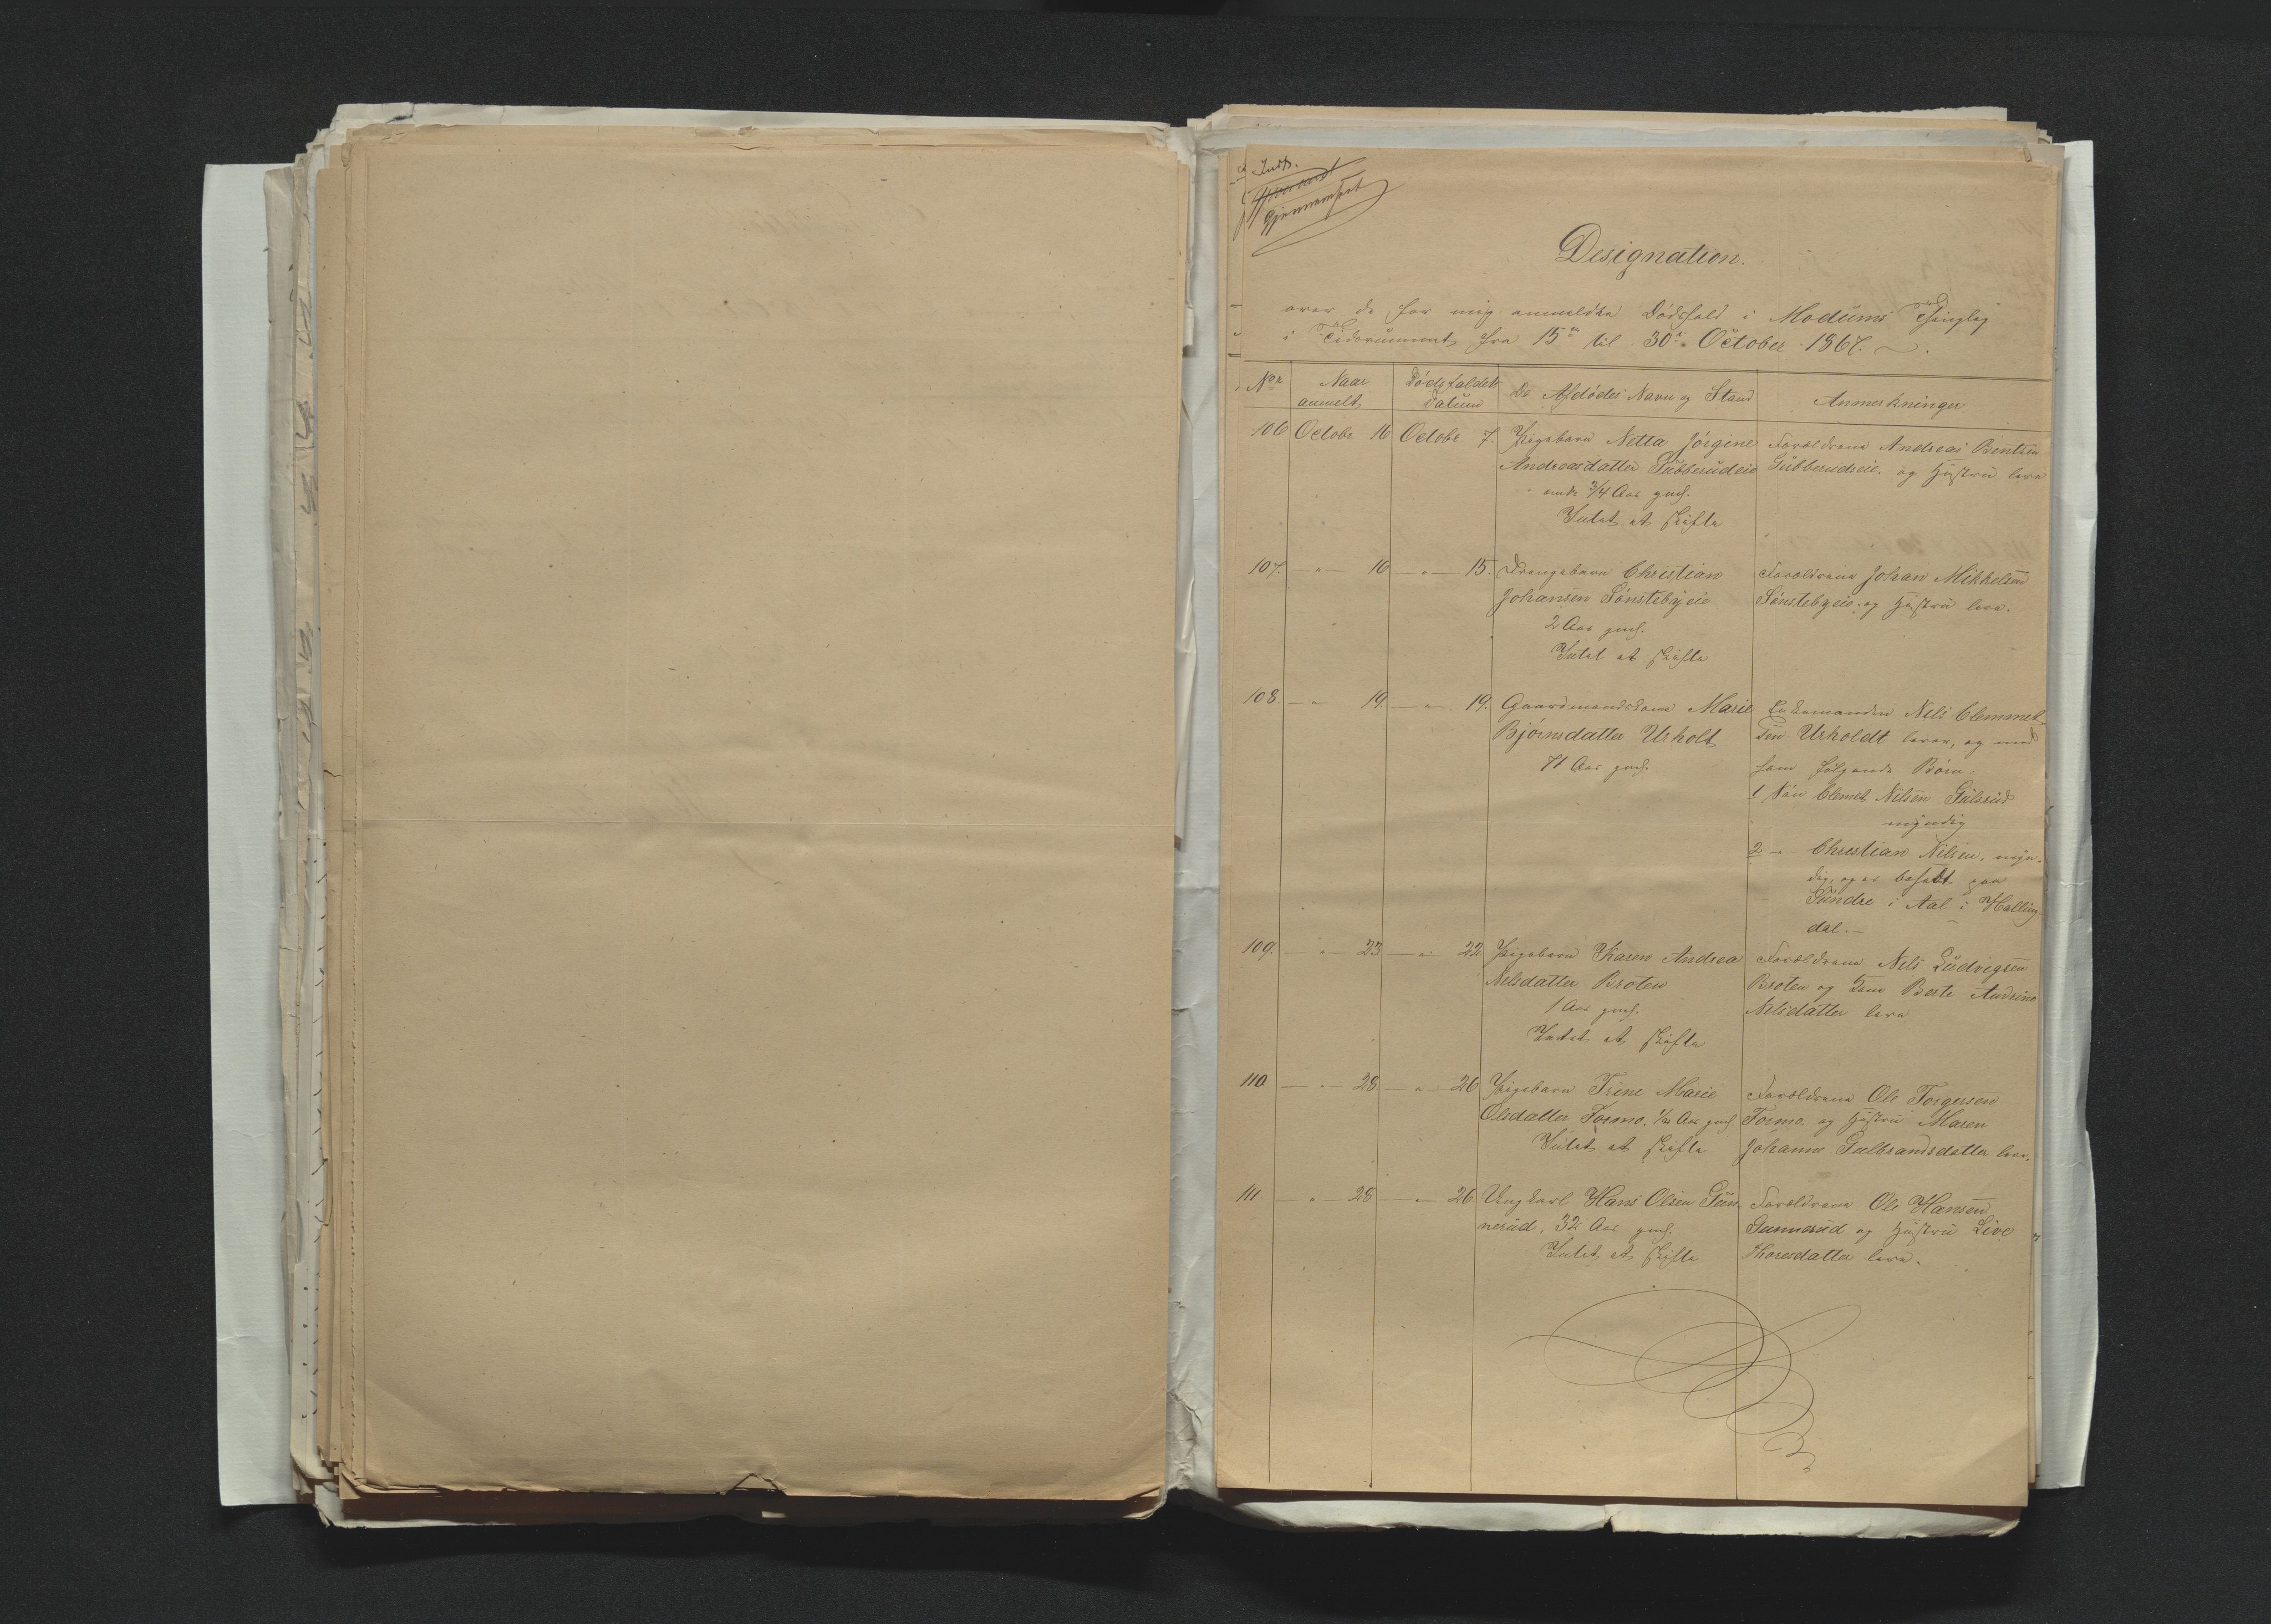 Indf.
Gjennemseet
Designation.
over de for mig anmeldte Dødsfald i Modums Thinglag
i Tidsrummet fra 15de til 30te October 1867.
No. Naar anmelt Dødsfaldets Datum De Afdødes Navn og Stand Anmerkninger
106 Octobr 16 Octobr 7. Pigebarn Netta Jörgine
Andreasdatter Gubberudeie
omtr 3/4 Aar gml.
Intet at skifte
Forældrene Andreas Bentsen
Gubberudeie og Hustru leve
107. " 16 " 15. Drengebarn Christian
Johansen Sønstebyeie
2 Aar gml.
Intet at skifte
Forældrene Johan Mikkelsen
Sønstebyeie og Hustru leve.
108. " 19. " 19. Gaardmandskone Marie
Bjørnsdatter Urholt
71 Aar gml.
Enkemanden Nels Clemmet-
sen Urholdt lever, og med
ham følgende Børn
1 Søn Clemet Nelsen Gulsrud
myndig
2 " Christian Nilsen, myn-
dig, og er bosat paa
Sundre i Aal i Halling-
dal.
109. " 23 " 22 Pigebarn Karen Andrea
Nelsdatter Broten
1 Aar gml.
Intet at skifte
Forældrene Nels Ludvigsen
Broten og Kone Berte Andrine
Nelsdatter leve
110 " 28 " 26 Pigebarn Trine Marie
Olsdatter Formo, 1/2 Aar gml
Intet at skifte
Forældrene Ole Torgersen
Formo og Hustru Maren
Johanne Gulbrandsdatter leve.
111. " 28 " 26 Ungkarl Hans Olsen Gun-
nerud, 32 Aar gml.
Intet at skifte
Forældrene Ole Hansen
Gunnerud og Hustru Live
Thoresdatter leve.